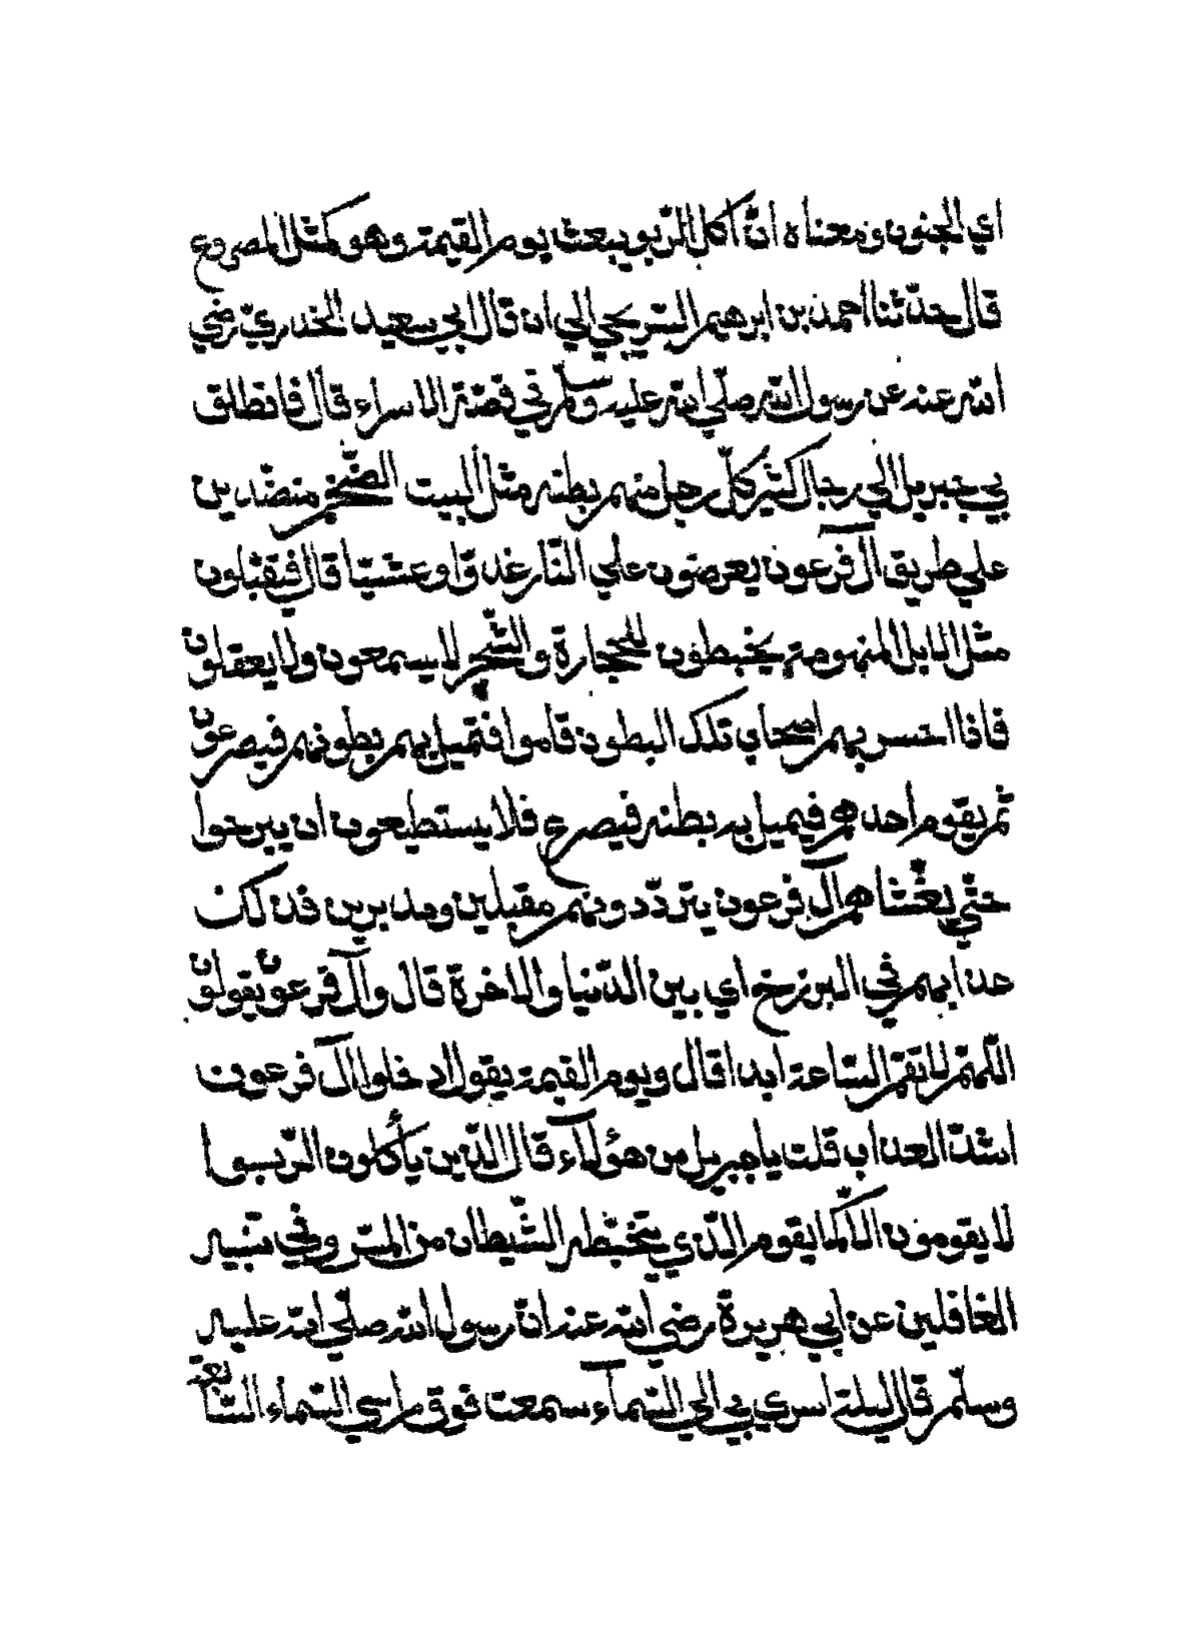 اي الجنون ومعناه انّ آكل الرّبو يبعث يوم القيمة وهو كمثل المصروع
قال حدّثنا احمد بن ابرهيم السريجي الي ان قال ابي سعيد الخدريّ رضي
الله عنه عن رسول الله صلّي الله عليه وسلّم في قصّة الاسراء قال فانطلق
بي جبريل الي رجال كثير كلّ رجل منهم بطنه مثل البيت الضّخم منضّدين
علي طريق آل فرعون يعرضون علي النّار غدوّا وعشيّا قال فيقبلون
مثل الابل المنهومة يخبطون الحجارة والشّجر لا يسمعون ولا يعقلون
فاذا احسّ بهم اصحاب تلك البطون قاموا فتميل بهم بطونهم فيصرعون
ثم يقوم احدهم فيميل به بطنه فيصرع فلا يستطيعون ان يبرحوا
حتّي يغشاهم آل فرعون يتردّدونهم مقبلين ومدبرين فذلك
عذابهم في البرزخ اي بين الدّنيا والاخرة قال وآل فرعون يقولون
اللّهمّ لا تقم السّاعة ابدا قال ويوم القيمة يقول ادخلوا آل فرعون
اشدّ العذاب قلت يا جبريل من هؤلآء قال الّذين يأكلون الرّبوا
لا يقومون الّا كما يقوم الّذي يتخبّطه الشّيطان من المسّ وفي تنبيه
الغافلين عن ابي هريرة رضي الله عنه انّ رسول الله صلّي الله عليه
وسلّم قال ليلة اسري بي الي السّمآء سمعت فوق راسي السّماء السّابعة